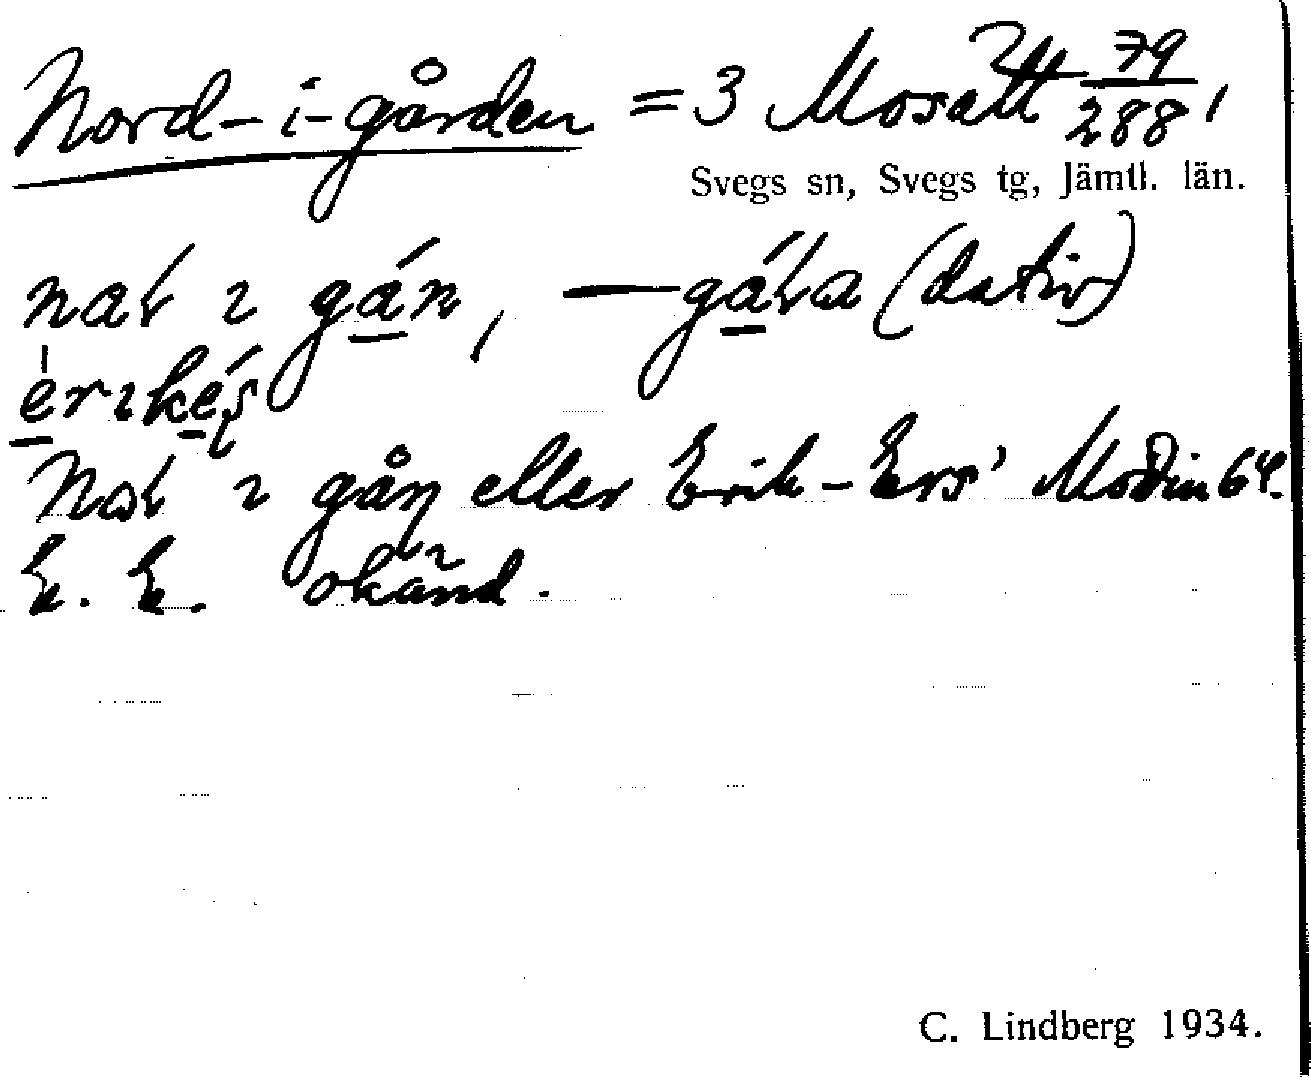 Nord-i-gården = 3 Mosätt 79/288,
Svegs sn, Svegs tg, Jämtl. län.
nar ı gán, — gára (dativ)
érıkés
Nor ı gån eller Erik-Ers' Modin 64.
E. E. okänd.
C. Lindberg 1934.